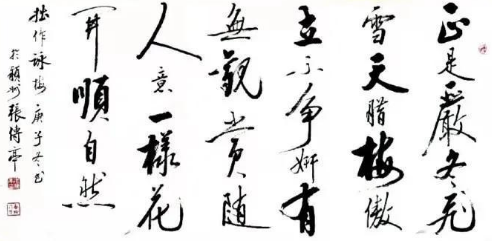 正是嚴冬飛
雪天腊梅傲
立不爭妍有
無觀賞隨
人意一樣花
開順自然
拙作詠梅 庚子冬
於穎州張亭